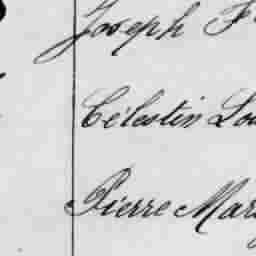 Joseph F
Célestin Lou
Pierre Mar